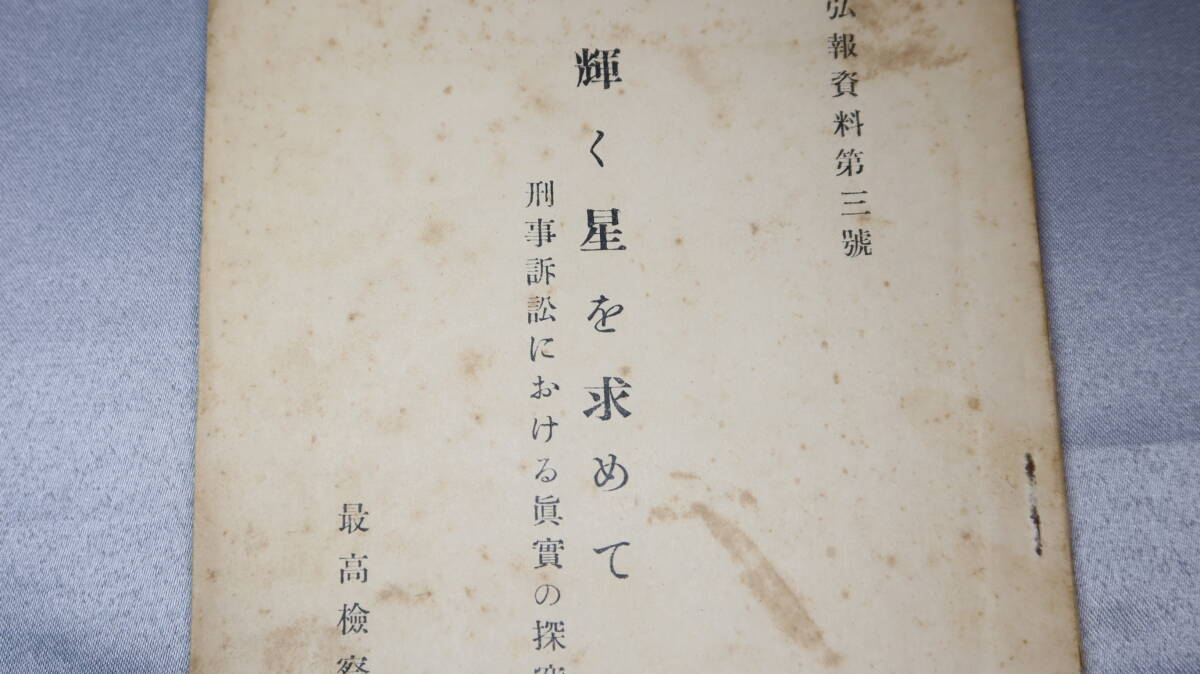 弘報資料第三號
輝く星を求めて
刑事訴訟における眞實の探究
最高檢察